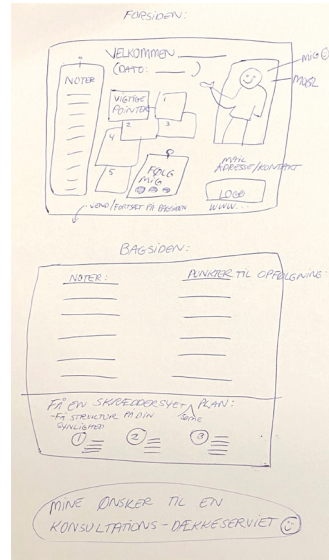 FORSIDEN:
VELKOMMEN
(DATO: )
MIG
NOTER
VIGTIGE
POINTER
1
2
3
4
5
FØLG
MIG
MAIL
ADRESSE/KONTAKT
LOGO
WWW...
VEND/FORTSÆT PÅ BAGSIDEN
BAGSIDEN:
NOTER:
PUNKTER TIL OPFØLGNING:
FÅ EN SKRÆDDERSYET PLAN:
-FÅ STRUKTUR PÅ DIN
SYNLIGHED
1 2 3
MINE ØNSKER TIL EN
KONSULTATIONS-DÆKKESERVIET